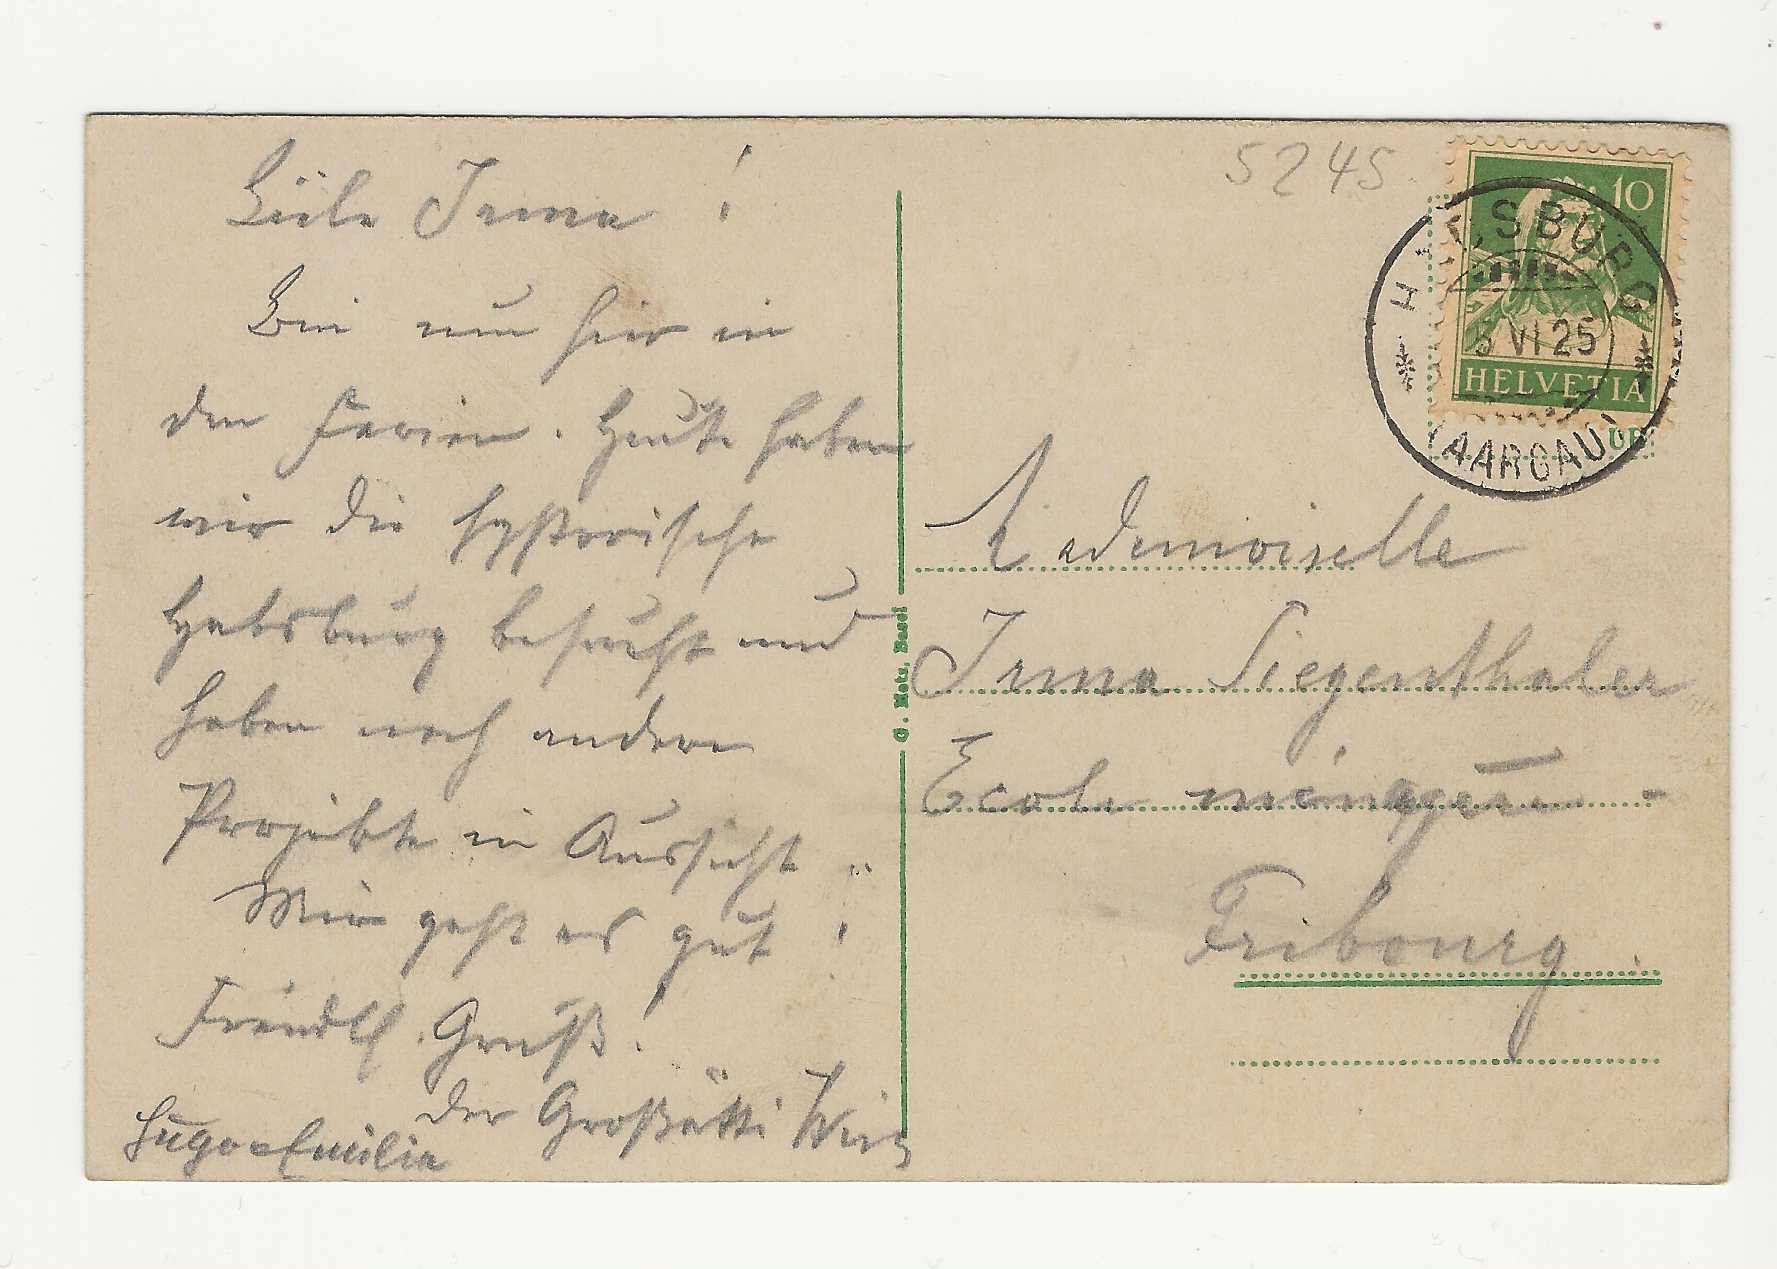 Liebe Irma !
Bin nun hier in
den Ferien. Heute haben
wir die hysterische
Habsburg besucht und
haben noch andere
Projekte in Aussicht ..
Mir geht es gut !
Freundlch. Gruß !
der Großätti
Hugo u Emilie
5245
10
HELVETIA
HABSBURG
5 VI 25
(AARGAU)
G. Metz, Basel
Mademoiselle
Irma Siegenthaler
Ecole ménagère -
Fribourg.